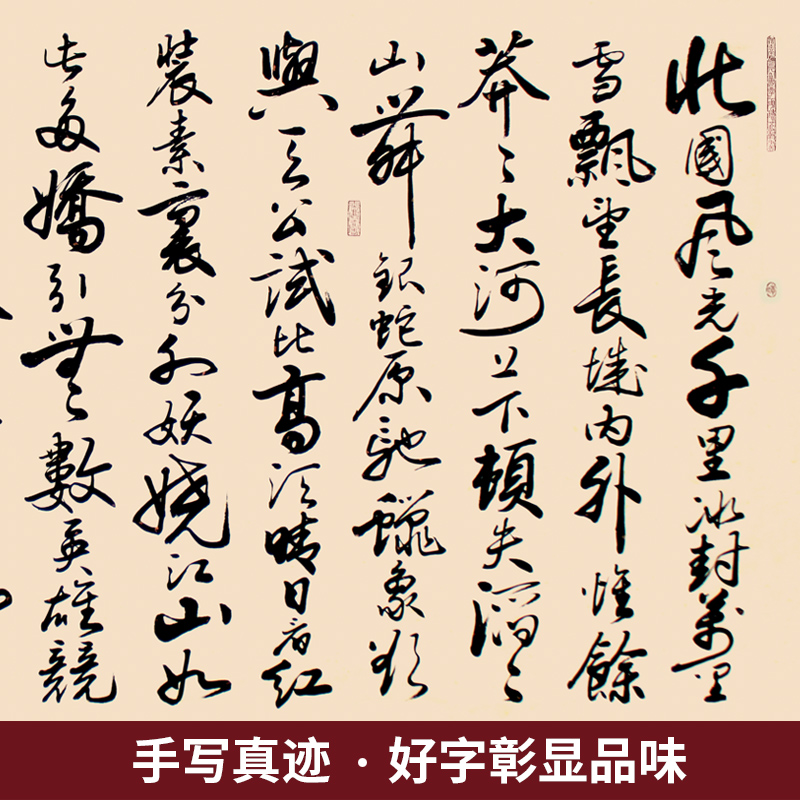 北國風光千里冰封萬里
雪飄望長城內外惟餘
莽〻大河上下頓失滔〻
山舞銀蛇原馳蠟象欲
與天公試比高須晴日看紅
裝素裹分外妖嬈江山如
此多嬌引無數英雄競
手写真迹 · 好字彰显品味